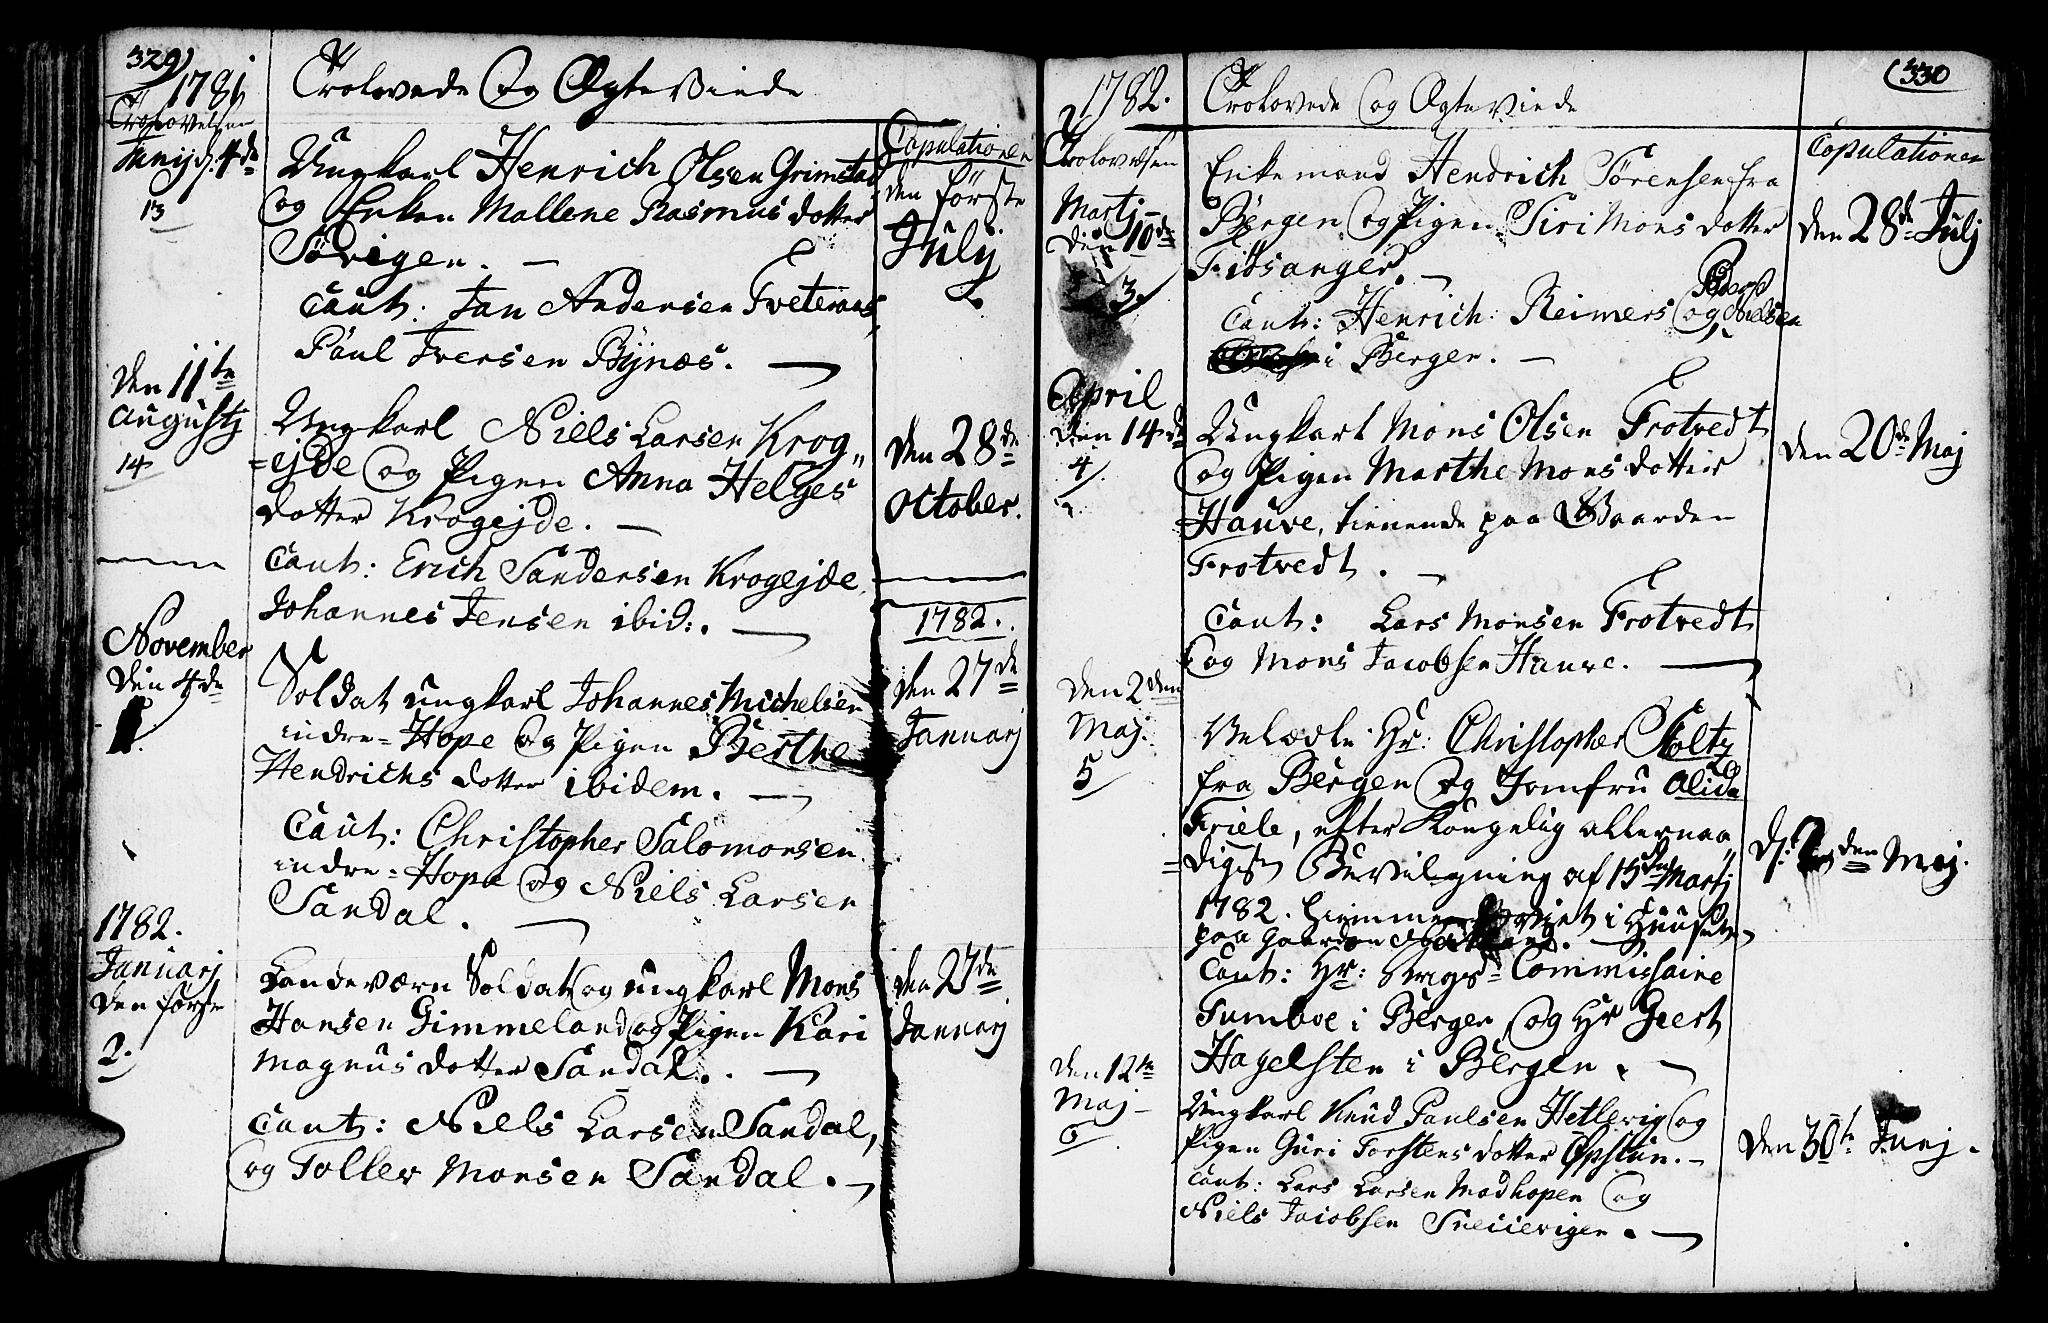 329)
1781
Trolovede Og Ægteviede
Trolovelsen
Junij d. 4de
13
Copulationen
Ungkarl Henrich Olsen Grimstad
og Enken Mallene Rasmus dotter
Sørigen. —
den første
Julij
Caut: Jan Andersen Tveteraas,
Påul Iversen Bÿnæs. —
den 11te
Augustj
14
Ungkarl Niels Larsen Krog„
=ejde og Pigen Anna Helges
dotter Krogejde. —
den 28de
October.
Caut: Erich Sandersen Krogejde,
Johannes Jensen ibid:. —
November
den 4de
1.
Soldat ungkarl Johannes Michelsen
indre=Hope og Pigen Berthe
Hendrichs dotter ibidem. —
1782.
den 27de
Januarj
Caut: Christopher Salomonsen
indre=Hope og Niels Larsen
Sandal. —
1782.
Januarj
den første
2.
Landeværn Soldat og ungkarl Mons
Hansen Gimmeland og Pigen Kari
Magnus dotter Sandal. —
den 27de
Januarj
Caut: Niels Larsen Sandal,
og Toller Monsen Sandal. —
(330
1782.
Trolovede og Ægteviede
Trolovelsen
Copulationen
Martj
den 10de
3.
Enkemand Hendrich Sørensen fra
Bergen og Pigen Siri Mons dotter
Fiøsanger. —
den 28de Julj
Caut: Henrich Reimers og Peder Nielsen
i Bergen. —
April
den 14de
4.
Ungkarl Mons Olsen Trotvedt
og Pigen Marthe Mons dotter
Hauve, tienende paa Gaarden
Trotvedt. —
den 20de Maj
Caut: Lars Monsen Trotvedt
og Mons Jacobsen Hauve. —
den 2den
Maj.
5
Velædle Hr: Christopher Stoltz
fra Bergen og Jomfru Alida
Friele, efter Kongelig allernaa„
=digst Bevilgning af 15de Martj
1782. hiemme viet i Huuset
paa Gaarden
d: 2den Maj.
Caut: Hr: Krigs=Commissaire
Tumboe i Bergen og Hr Geert
Hagelsten i Bergen. —
den 12te
Maj
6
Ungkarl Knud Paulsen Hetlevig og
Pigen Guri Torstens dotter Øpstun. —
den 30te Junj.
Caut: Lars Larsen Madhopen og
Niels Jacobsen Sneeevigen. —